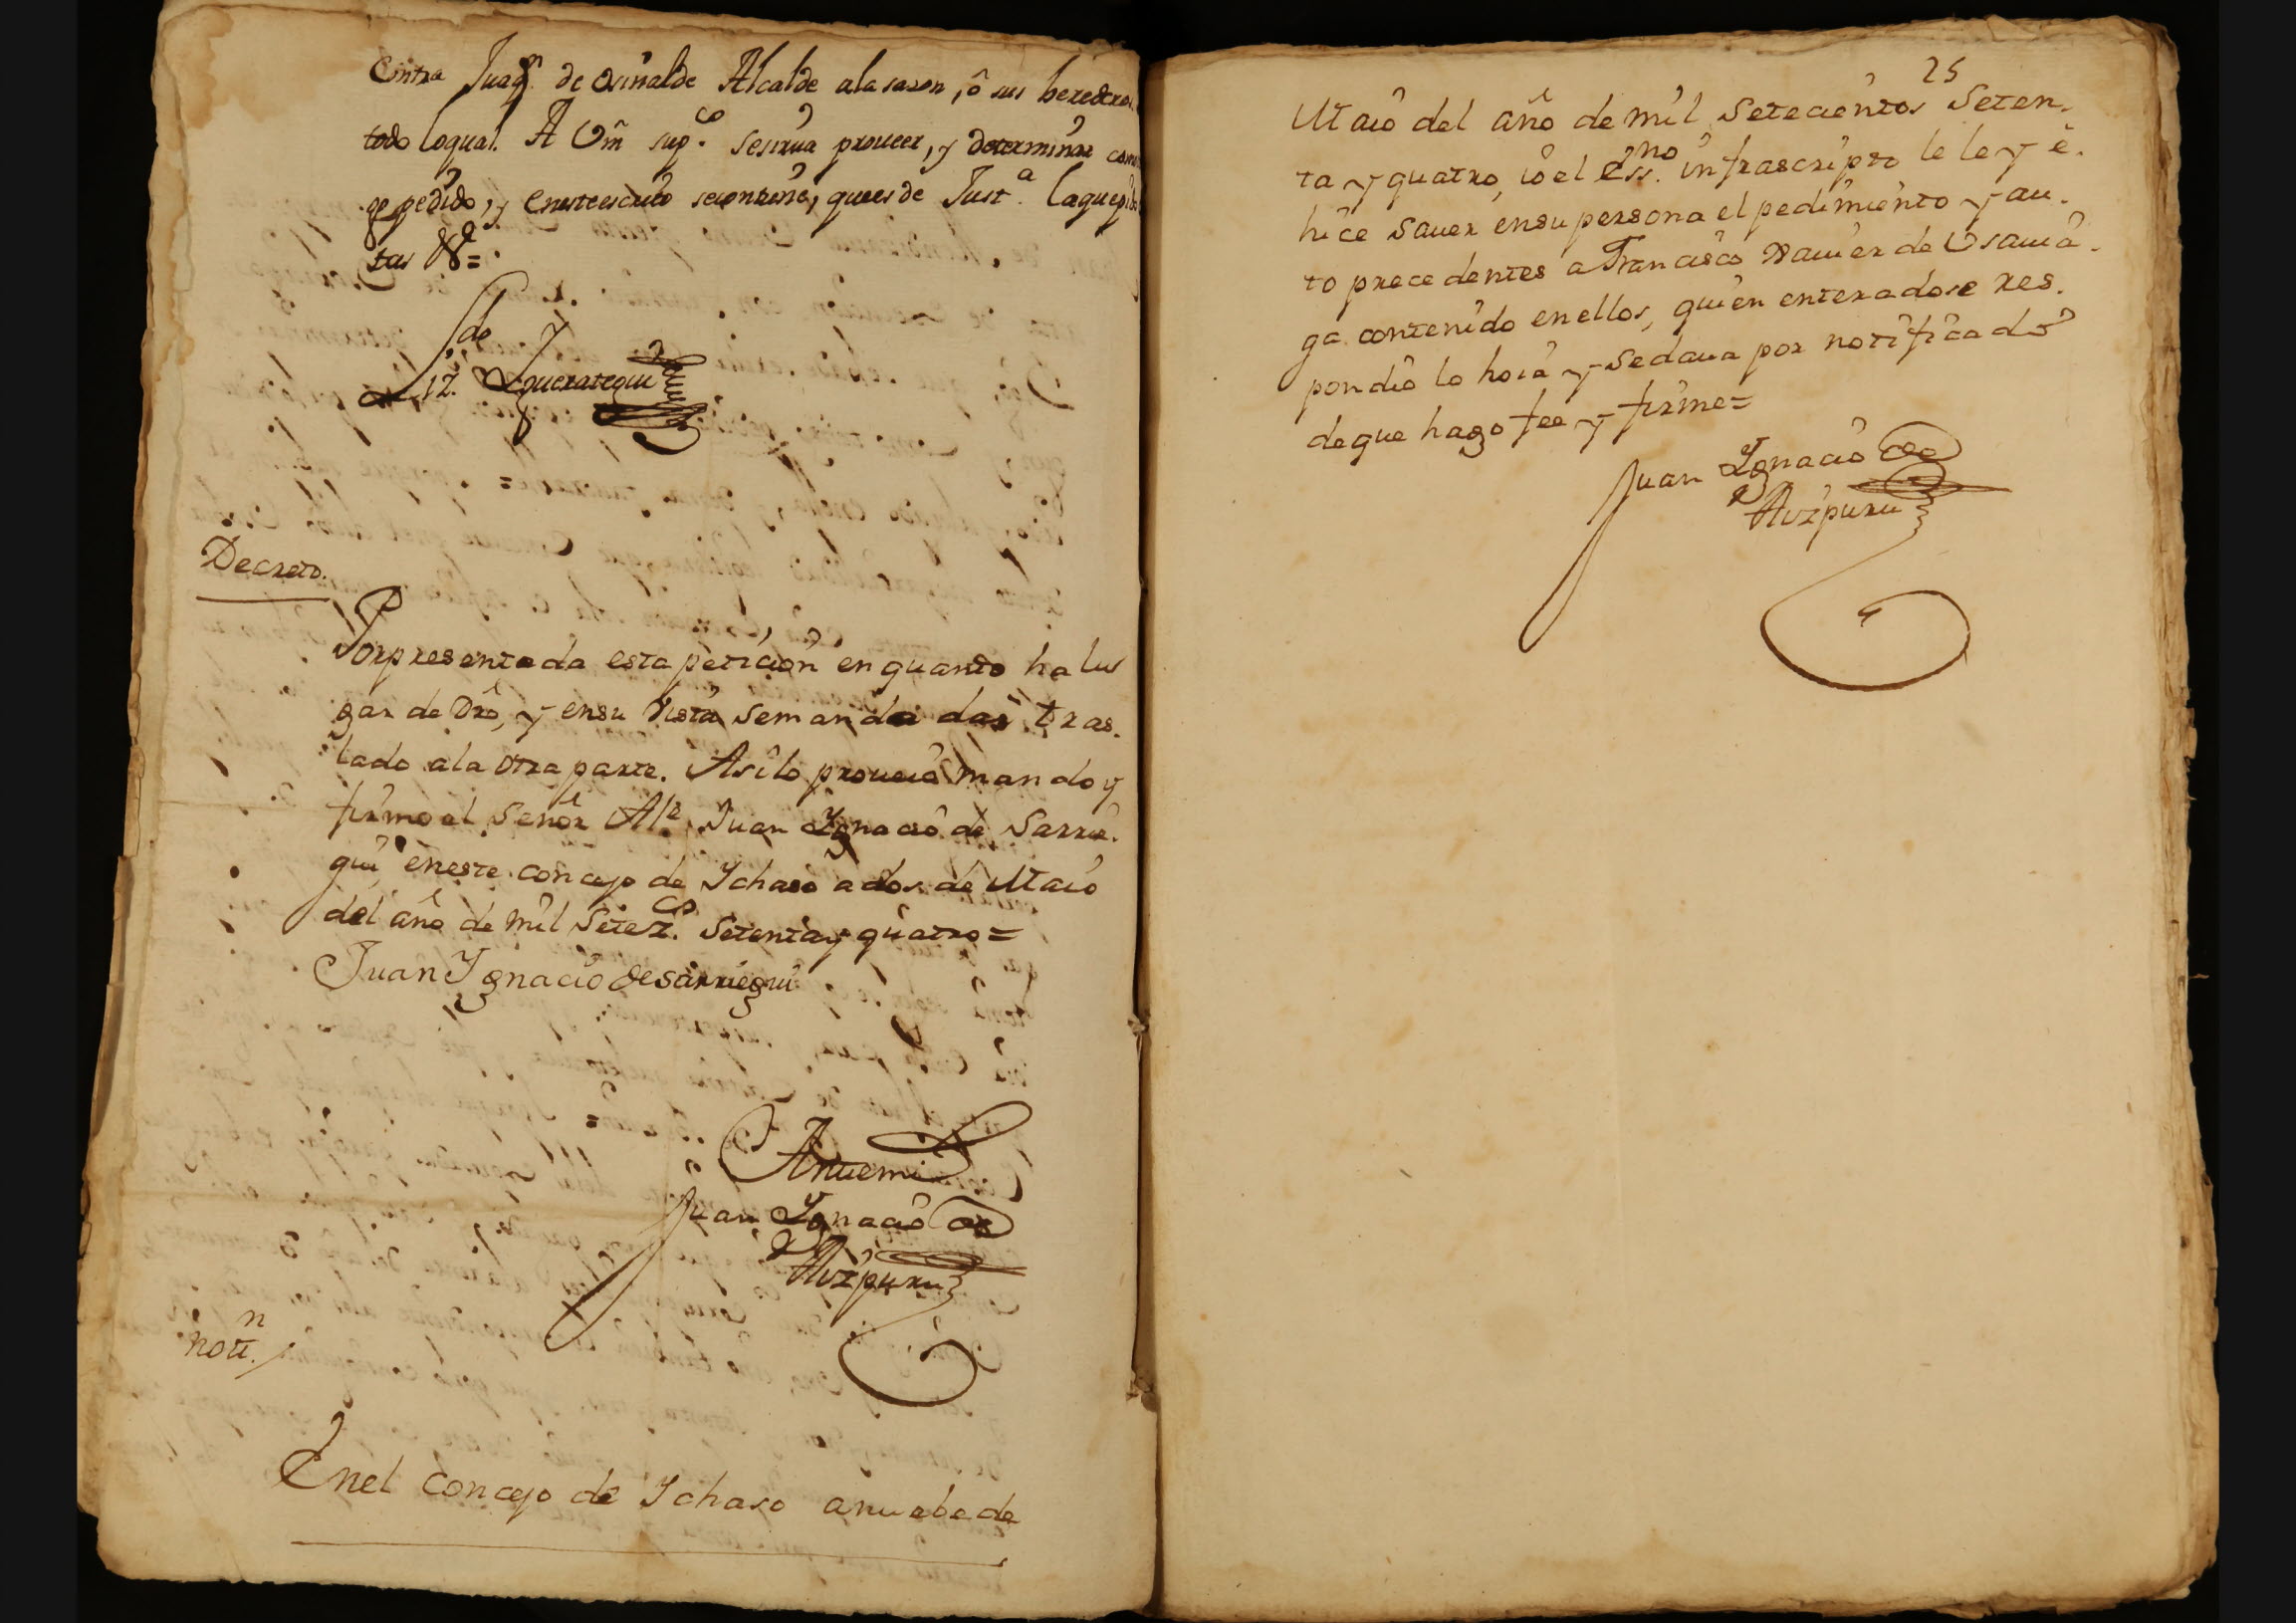 Contra Juaqn. de Osinalde Alcalde ala sazon, ô sus herederos
todo loqual. A Vm̃ supco. sesirua proueer, y determinar como
pedido, y eneste escrito secontiene, quees de Justa. laque pido
tas &=
Ldo
Yguerategui
Decreto.
Por presentada esta petición en quanto ha lu
gar de Dro, y ensu vista semanda dar tras.
lado ala otra parte. Asilo proueió mando y
firmo el Señor Alce Juan Ygnacio de Sarrie.
gui, eneste concejo de Ychaso a dos de Maio
del año de mil Setezcos. Setenta y quatro=
Juan Ygnacio de Sarriegui
Antemi
Juan Ygnacio de
Aizpuru
notin.
Enel concejo de Ychaso anuebe de
25
Maio del año de mil Setecientos Seten.
ta y quatro, io el Essno. infrascripto le ley ê.
hice sauer ensu persona el pedimiento y au.
to precedentes a Francisco Xauier de Usauia.
ga contenido enellos, quien enteradose res.
pondió lo hoia y sedaua por notificado
deque hago fee y firme=
Juan Ygnacio de
Aizpuru